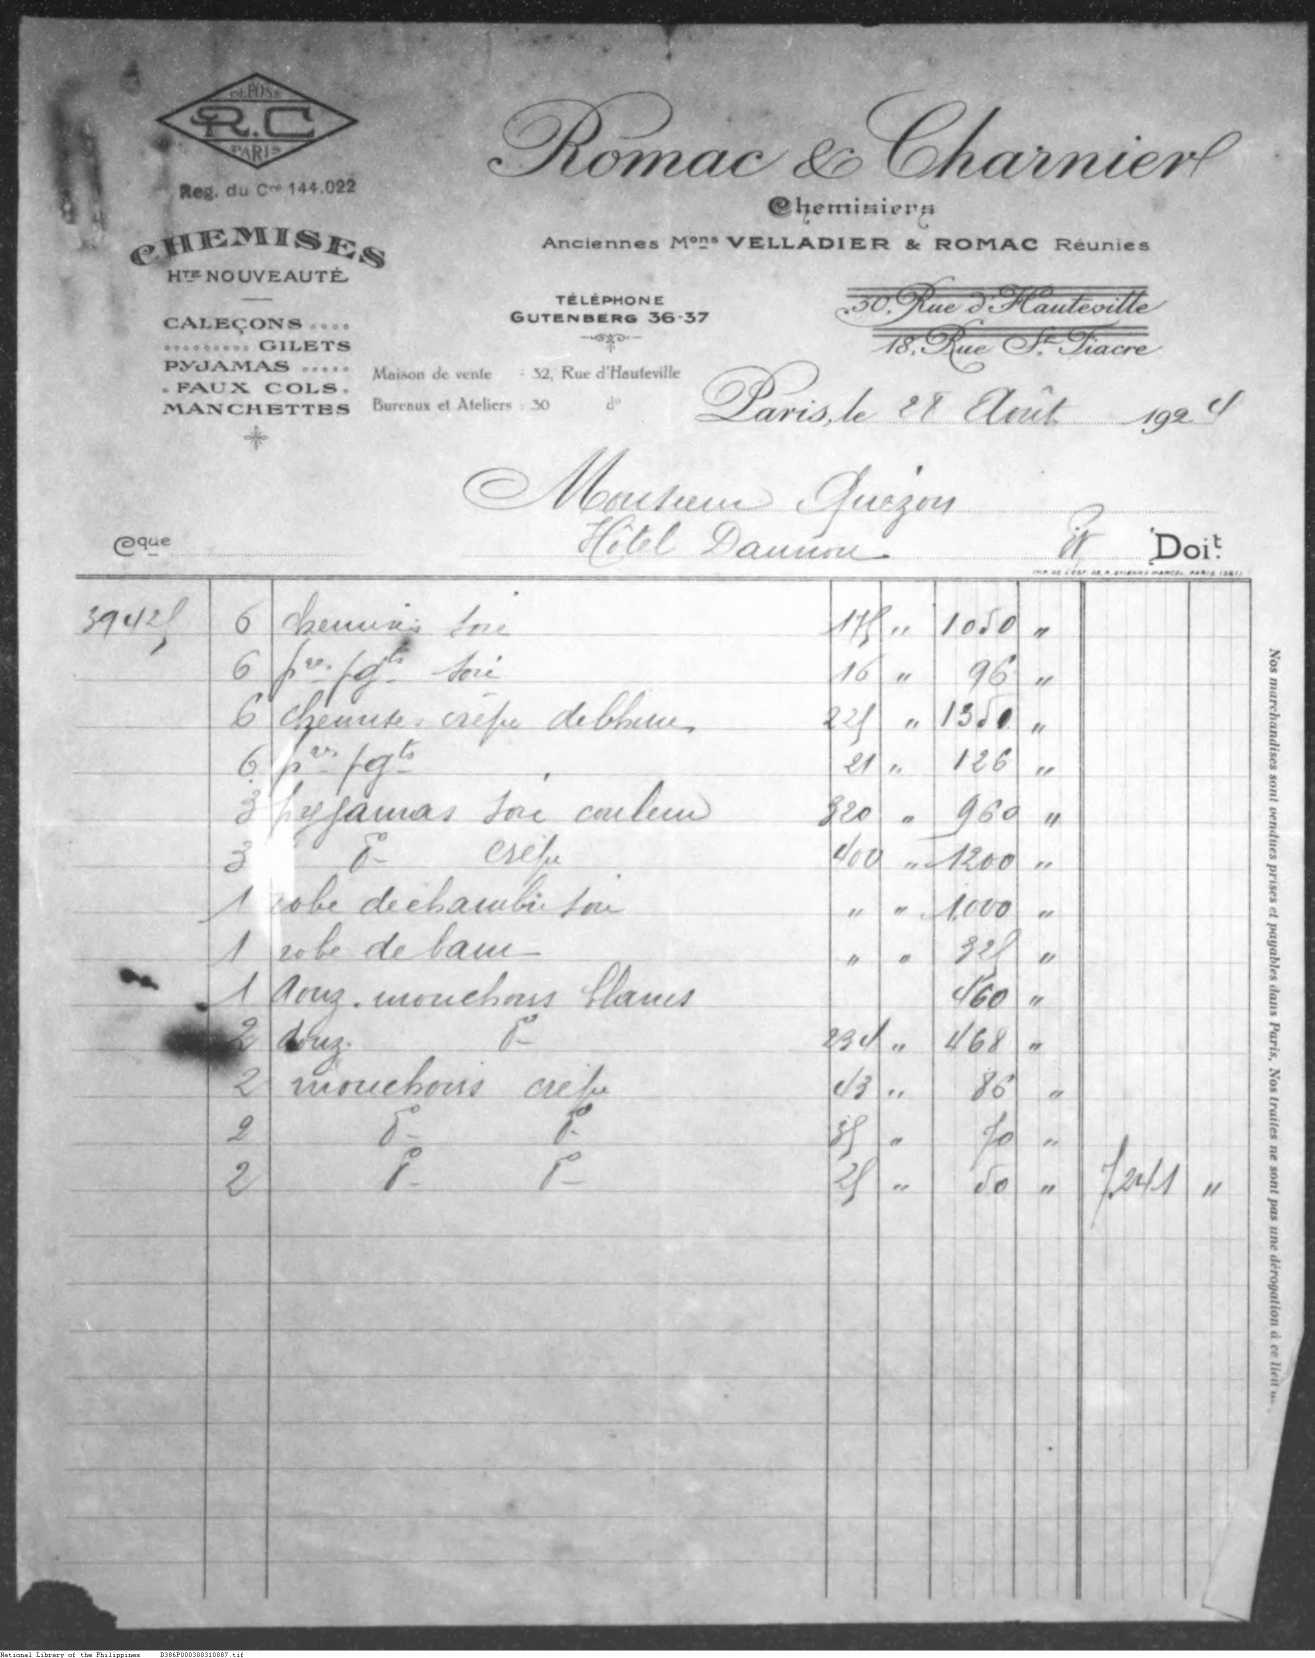 DÉPOSÉ
R.C
PARIS
Reg. du Cce 144.022
CHEMISES
Hte NOUVEAUTÉ
CALEÇONS ....
......... GILETS
PYJAMAS .....
. FAUX COLS .
MANCHETTES
Romac & Charnier
Chemisiers
Anciennes Mons VELLADIER & ROMAC Réunies
TÉLÉPHONE
GUTENBERG 36-37
30, Rue d'Hauteville
18, Rue St Fiacre
Maison de vente : 32, Rue d'Hauteville
Bureaux et Ateliers : 30 do
Paris, le 28 Août 1924
Monsieur Quézon
Hôtel Daunou
Cque Doit
IMP. DE L'EST. 25, R. ETIENNE MARCEL, PARIS
39425 6 chemises soie 175 " 1050 "
6 pres pgts soie 16 " 96 "
6 chemises crêpe de Chine 225 " 1350 "
6 pres pgts 21 " 126 "
3 pyjamas soie couleur 320 " 960 "
3 do crêpe 400 " 1200 "
1 robe de chambre soie " " 1.000 "
1 robe de bain " " 325 "
1 douz. mouchoirs blancs 460 "
2 douz. do 234 " 468 "
2 mouchoirs crêpe 43 " 86 "
2 do do 35 " 70 "
2 do do 25 " 50 " 7.241 "
Nos marchandises sont vendues prises et payables dans Paris. Nos traites ne sont pas une dérogation à ce lieu
National Library of the Philippines B386P000300310887.tif